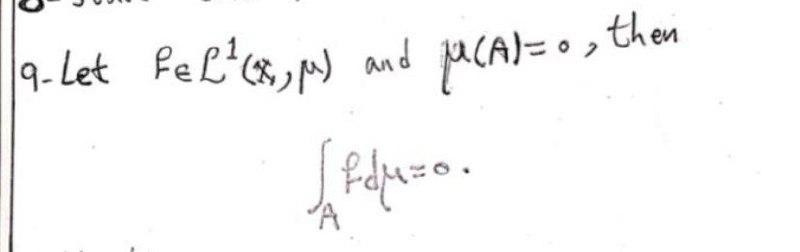 9- Let f ∈ ℒ¹(X, μ) and μ(A)=0, then
∫_A f dμ = 0.